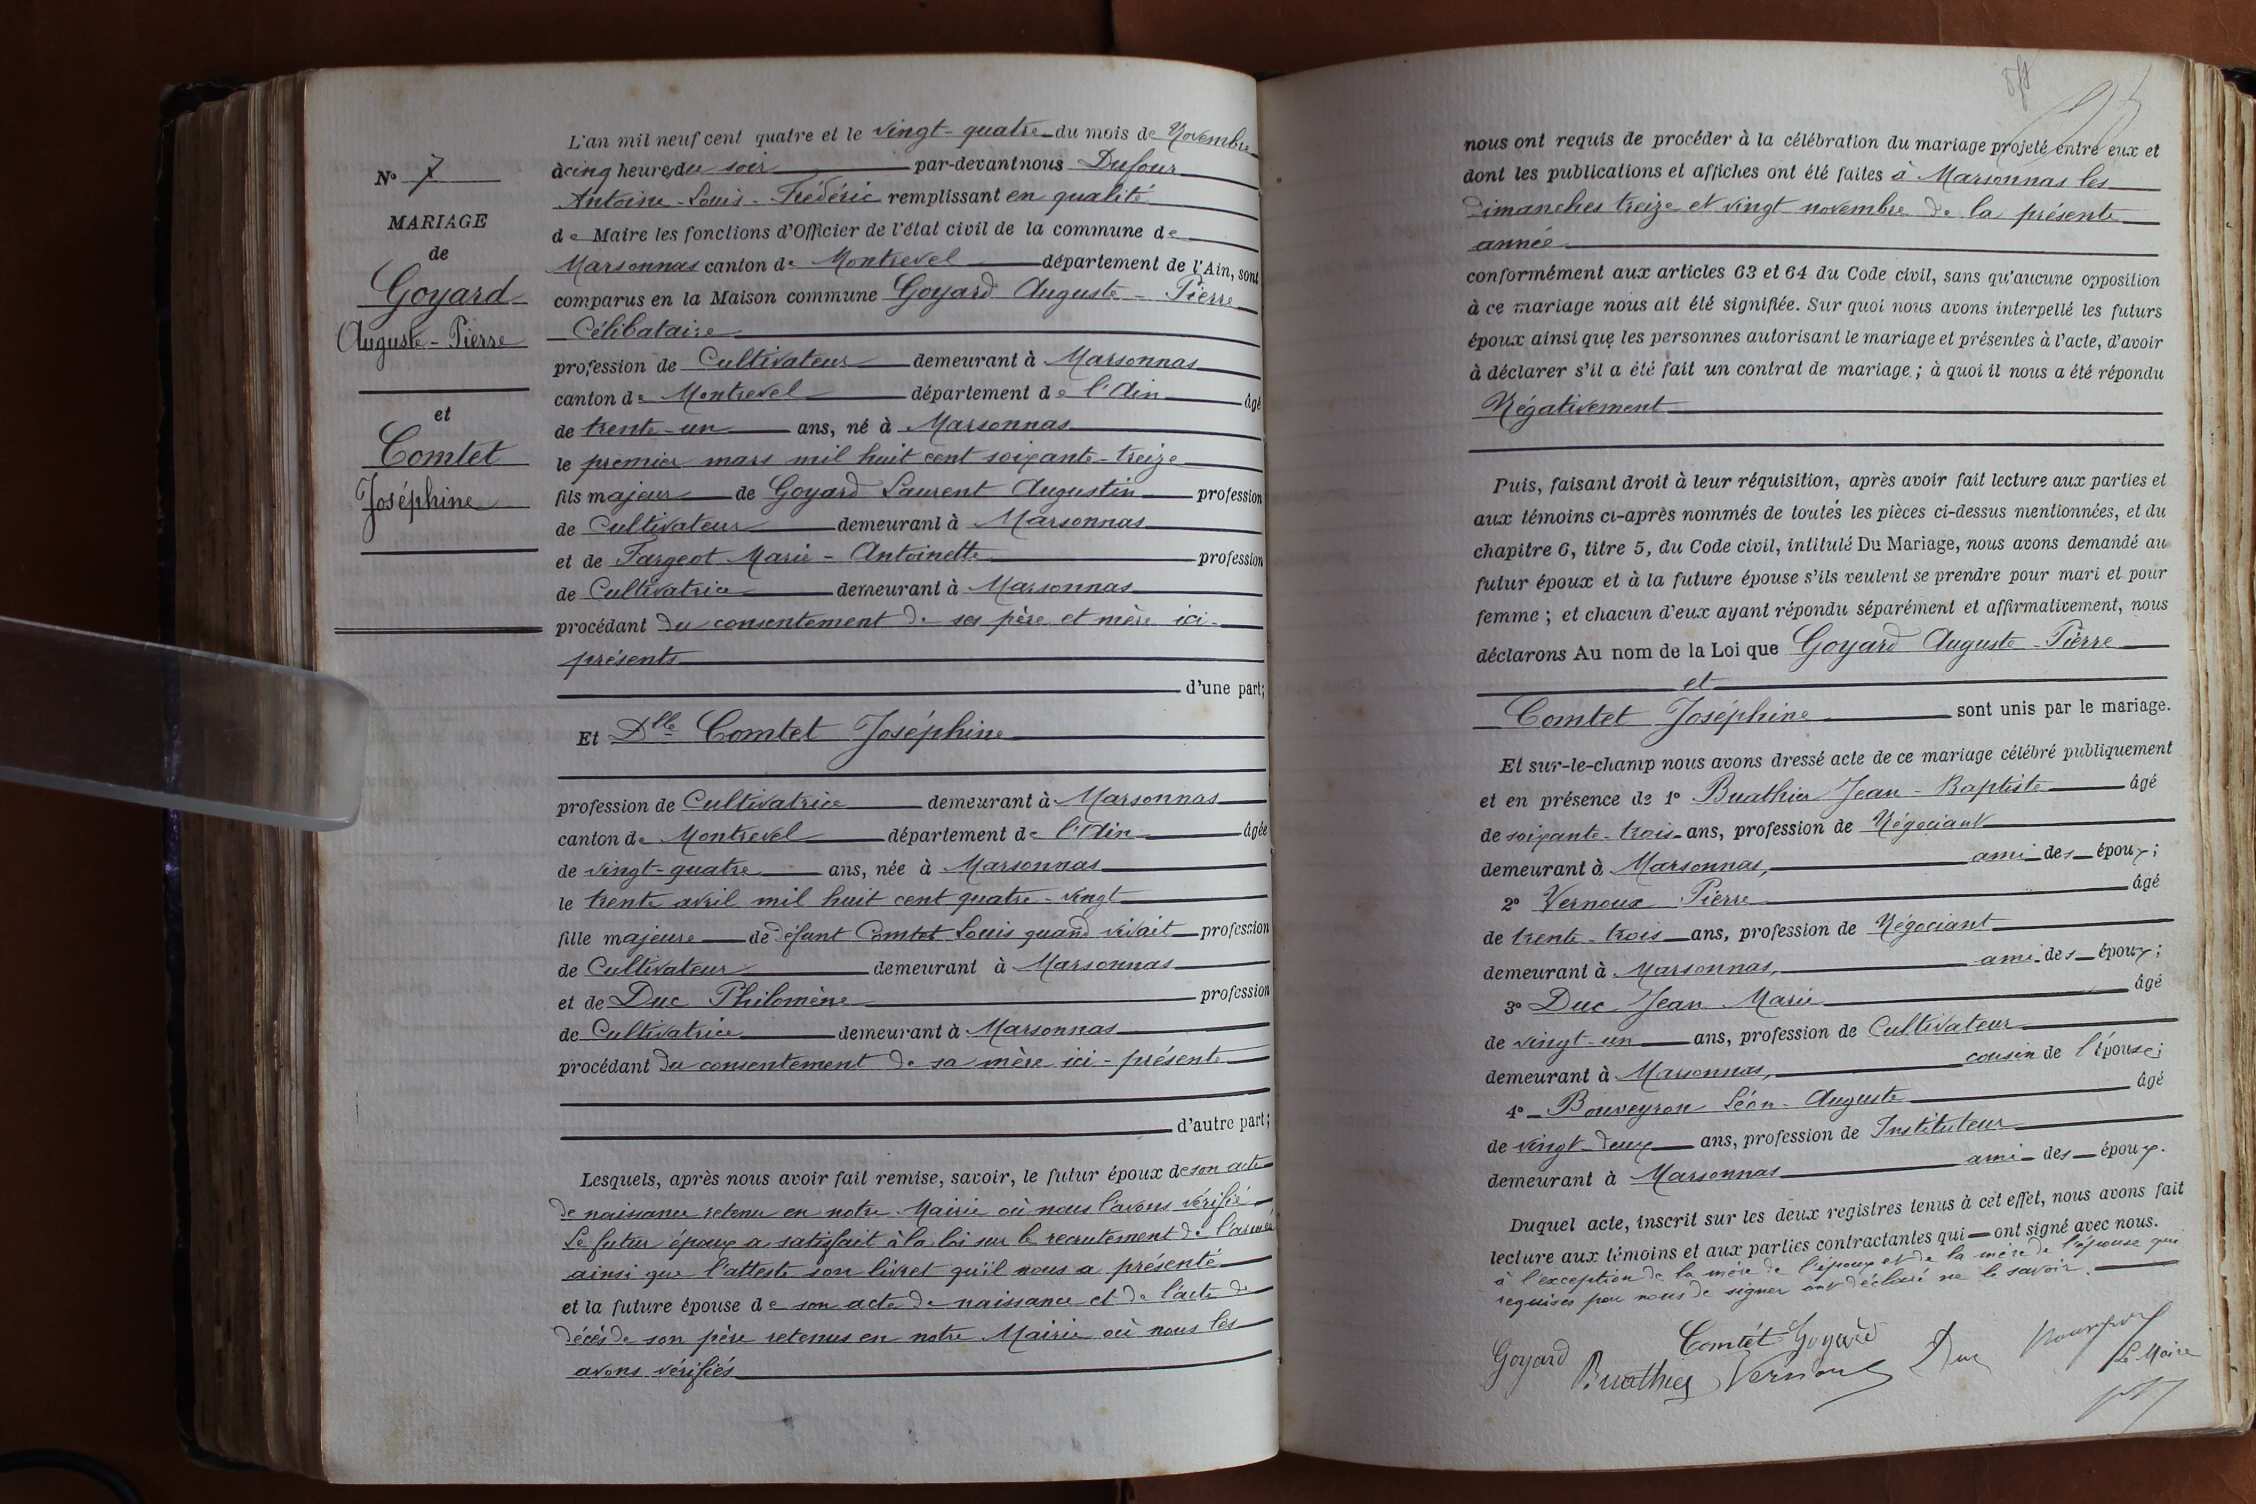 N° 7
MARIAGE
de
Goyard
Auguste-Pierre
et
Comtet
Joséphine
L'an mil neuf cent quatre et le vingt-quatre du mois de Novembre
à cinq heures du soir par-devant nous Dufour
Antoine-Louis-Frédéric remplissant en qualité
de Maire les fonctions d'Officier de l'état civil de la commune de
Marsonnas canton de Montrevel département de l'Ain, sont
comparus en la Maison commune Goyard Auguste-Pierre
Célibataire
profession de Cultivateur demeurant à Marsonnas
canton de Montrevel département de l'Ain âgé
de trente-un ans, né à Marsonnas
le premier mars mil huit cent soixante-treize
fils majeur de Goyard Laurent Augustin profession
de Cultivateur demeurant à Marsonnas
et de Fargeot Marie-Antoinette profession
de Cultivatrice demeurant à Marsonnas
procédant du consentement de ses père et mère ici-
présents
d'une part;
Et Dlle Comtet Joséphine
profession de Cultivatrice demeurant à Marsonnas
canton de Montrevel département de l'Ain âgée
de vingt-quatre ans, née à Marsonnas
le trente avril mil huit cent quatre-vingt
fille majeure de défunt Comtet Louis quand vivait profession
de Cultivateur demeurant à Marsonnas
et de Duc Philomène profession
de Cultivatrice demeurant à Marsonnas
procédant du consentement de sa mère ici-présente
d'autre part;
Lesquels, après nous avoir fait remise, savoir, le futur époux de son acte
de naissance retenu en notre Mairie où nous l'avons vérifié
Le futur époux a satisfait à la loi sur le recrutement de l'armée
ainsi que l'atteste son livret qu'il nous a présenté
et la future épouse de son acte de naissance et de l'acte de
décès de son père retenus en notre Mairie où nous les
avons vérifiés
nous ont requis de procéder à la célébration du mariage projeté entre eux et
dont les publications et affiches ont été faites à Marsonnas les
dimanches treize et vingt novembre de la présente
année
conformément aux articles 63 et 64 du Code civil, sans qu'aucune opposition
à ce mariage nous ait été signifiée. Sur quoi nous avons interpellé les futurs
époux ainsi que les personnes autorisant le mariage et présentes à l'acte, d'avoir
à déclarer s'il a été fait un contrat de mariage ; à quoi il nous a été répondu
Négativement
Puis, faisant droit à leur réquisition, après avoir fait lecture aux parties et
aux témoins ci-après nommés de toutes les pièces ci-dessus mentionnées, et du
chapitre 6, titre 5, du Code civil, intitulé Du Mariage, nous avons demandé au
futur époux et à la future épouse s'ils veulent se prendre pour mari et pour
femme ; et chacun d'eux ayant répondu séparément et affirmativement, nous
déclarons Au nom de la Loi que Goyard Auguste-Pierre
et
Comtet Joséphine sont unis par le mariage.
Et sur-le-champ nous avons dressé acte de ce mariage célébré publiquement
et en présence de 1° Buathier Jean-Baptiste âgé
de soixante-trois ans, profession de Négociant
demeurant à Marsonnas, ami des époux;
2° Vernoux Pierre âgé
de trente-trois ans, profession de Négociant
demeurant à Marsonnas, ami des époux;
3° Duc Jean Marie âgé
de vingt-un ans, profession de Cultivateur
demeurant à Marsonnas, cousin de l'épouse;
4° Bouveyron Léon-Auguste âgé
de vingt-deux ans, profession de Instituteur
demeurant à Marsonnas ami des époux.
Duquel acte, inscrit sur les deux registres tenus à cet effet, nous avons fait
lecture aux témoins et aux parties contractantes qui ont signé avec nous.
à l'exception de la mère de l'époux et de la mère de l'épouse qui
requises par nous de signer ont déclaré ne le savoir.
Goyard Comtét Goyard
Buathier Vernoux Duc
Le Maire